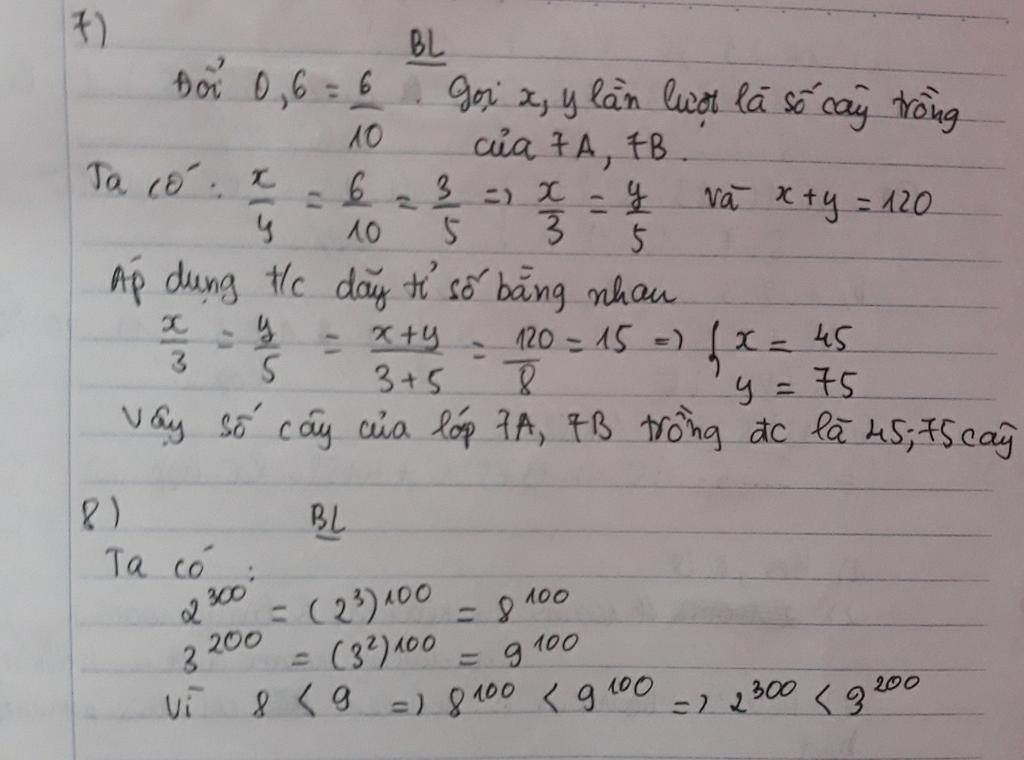 7)
BL
Đổi 0,6 = 6/10. Gọi x, y lần lượt là số cây trồng
của 7A, 7B.
Ta có: x/y = 6/10 = 3/5 => x/3 = y/5 và x+y = 120
Áp dụng t/c dãy tỉ số bằng nhau
x/3 = y/5 = x+y/3+5 = 120/8 = 15 => { x = 45
y = 75
Vậy số cây của lớp 7A, 7B trồng đc là 45; 75 cây
8)
BL
Ta có:
2^300 = (2^3)^100 = 8^100
3^200 = (3^2)^100 = 9^100
Vì 8 < 9 => 8^100 < 9^100 => 2^300 < 3^200